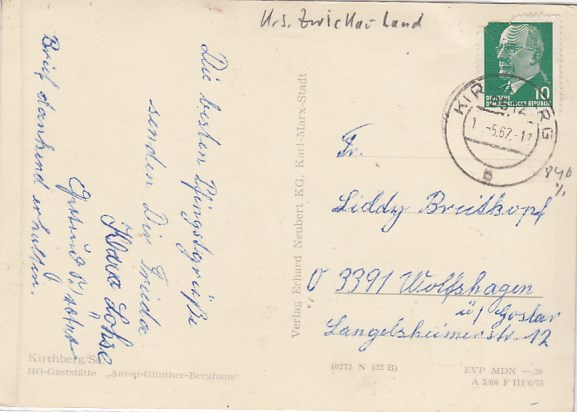 Krs. Zwickau-Land
Die besten Pfingstgrüße
senden Dir Frieda
Klara Lohse
Brief dankend erhalten.
Verlag Erhard Neubert KG, Karl-Marx-Stadt
10
DEUTSCHE
DEMOKRATISCHE REPUBLIK
KIRCHBERG
-5.67.-
b
Fr.
Liddy Breitkopf
3391 Wolfshagen
ü/Goslar
Langelsheimerstr. 12
Kirchberg/Sa.
HO-Gaststätte „Anton-Günther-Berghaus"
40273 N (22 B)
EVP MDN —,20
A 3/66 F III/6/73